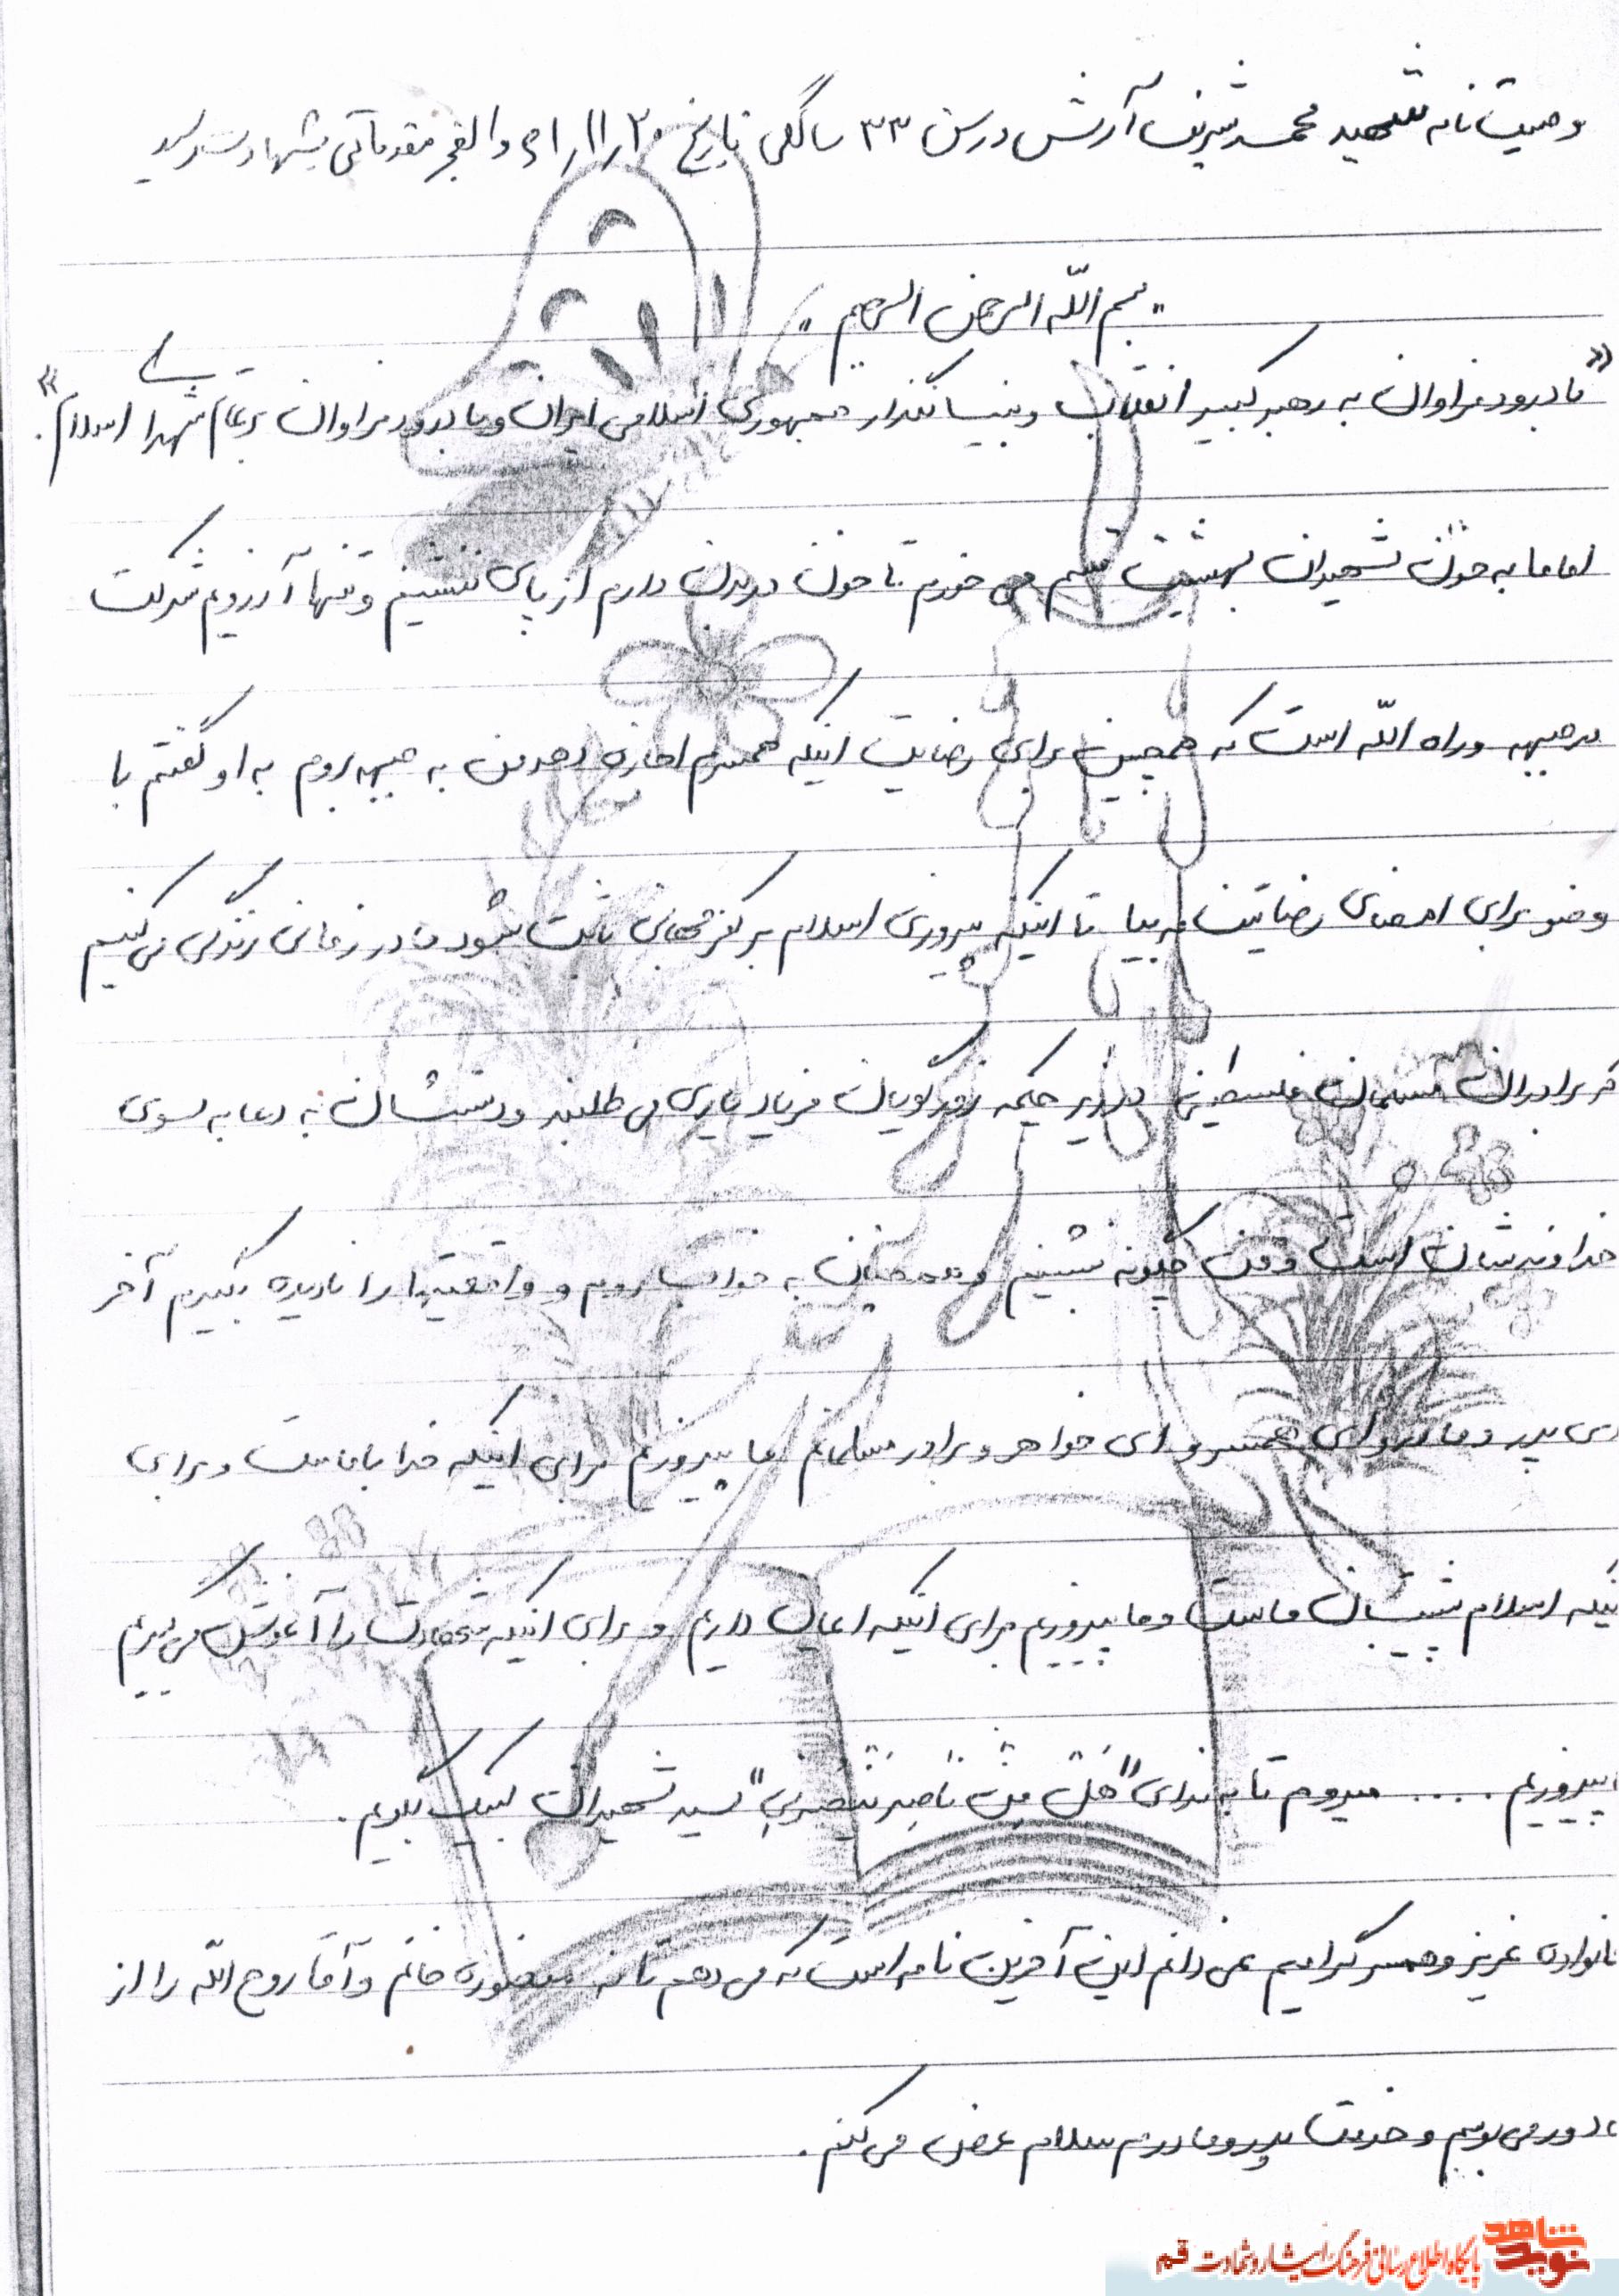 وصیتنامه شهید محمد شریف آرش در سن ۳۳ سالگی تاریخ ۲۰/۱۱/۶۱ والفجر مقدماتی بشهادت رسید
"بسم الله الرحمن الرحیم"
«با درود فراوان به رهبر کبیر انقلاب و بنیانگذار جمهوری اسلامی ایران و با درود فراوان بر تمام شهدا اسلام».
اماما به خون شهیدان بهشت قسم می خورم تا خون در بدن دارم از پای ننشینم و تنها آرزویم شرکت
در جبهه و راه الله است که همچنین برای رضایت اینکه همسرم اجازه دهد من به جبهه بروم به او گفتم با
وضو برای امضای رضایتنامه بیا تا اینکه پیروزی اسلام بر کفر جهانی ثابت شود ما در زمانی زندگی می کنیم
که برادران مسلمان فلسطینی در زیر چکمه زورگویان فریاد یاری می طلبند و دستشان به دعا به سوی
خداوندشان است و من چگونه بنشینم و همچنان به خواب روم و واقعیتها را نادیده بگیرم آخر
ای پدر و مادر و ای همسر و ای خواهر و برادر مسلمانم ما پیروزیم برای اینکه خدا با ماست و برای
اینکه اسلام پشتیبان ماست و ما پیروزیم برای اینکه ایمان داریم و برای اینکه شهادت را آغوش می گیریم
پیروزیم ..... میروم تا به ندای "هَل مِن ناصِر یَنصُرنی" سید شهیدان لبیک بگویم.
خانواده عزیز و همسر گرامیم نمی دانم این آخرین نامه است که می دهم یا نه منصوره خانم و آقا روح الله را از
دور می بوسم و خدمت پدر و مادرم سلام عرض می کنم.
نوید شاهد
پایگاه اطلاع رسانی فرهنگ ایثار و شهادت قم